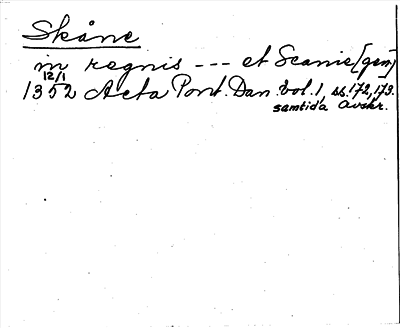 Skåne
in regnis --- et Scanie [gen]
12/1
1352 Acta Pont. Dan. vol. 1, ss. 172, 173.
samtida Avskr.